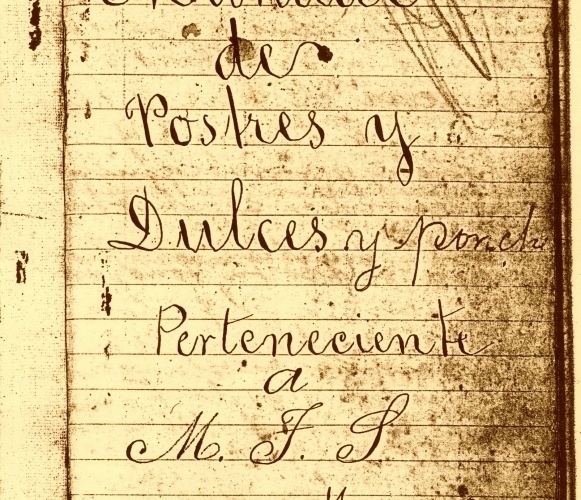 de
Postres y
Dulces y ponche
Perteneciente
a
M. F. S